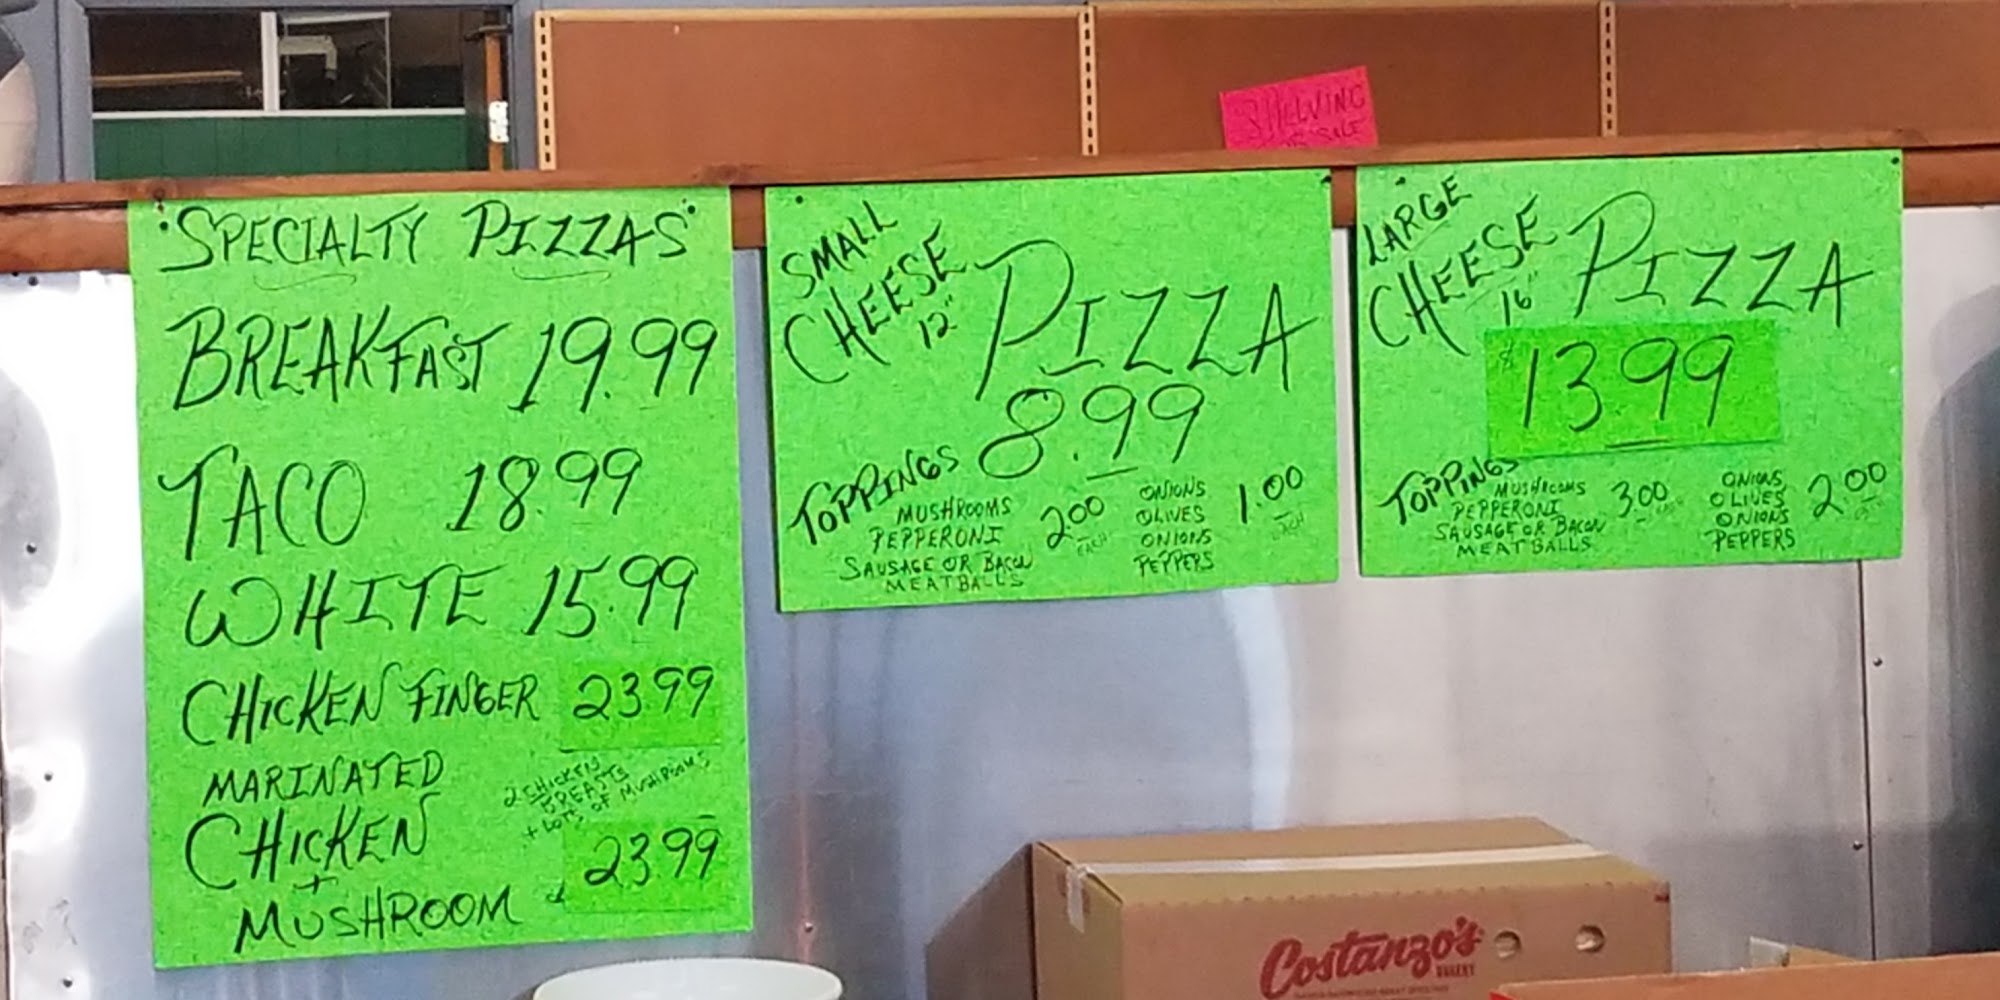 SHELVING
SALE
"SPECIALTY PIZZAS"
BREAKFAST 19.99
TACO 18.99
WHITE 15.99
CHICKEN FINGER 23.99
MARINATED
CHICKEN
+
MUSHROOM
2 CHICKEN
BREASTS
+ LOTS OF MUSHROOMS
23.99
SMALL
CHEESE
12"
PIZZA
8.99
TOPPINGS
MUSHROOMS
PEPPERONI
SAUSAGE OR BACON
MEATBALLS
2.00
EACH
ONIONS
OLIVES
ONIONS
PEPPERS
1.00
EACH
LARGE
CHEESE
16"
PIZZA
$13.99
TOPPINGS
MUSHROOMS
PEPPERONI
SAUSAGE OR BACON
MEATBALLS
3.00
EACH
ONIONS
OLIVES
ONIONS
PEPPERS
2.00
EACH
Costanzo's
BAKERY